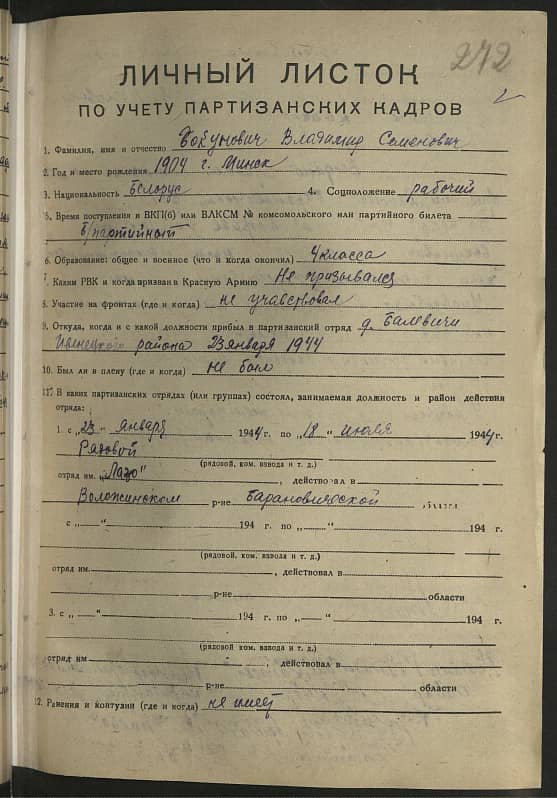 272
ЛИЧНЫЙ ЛИСТОК
ПО УЧЕТУ ПАРТИЗАНСКИХ КАДРОВ
1. Фамилия, имя и отчество Бокунович Владимир Семенович
2. Год и место рождения 1904 г. Минск
3. Национальность белорус 4. Соцположение рабочий
5. Время поступления в ВКП(б) или ВЛКСМ № комсомольского или партийного билета
б/партийный
6. Образование: общее и военное (что и когда окончил) 4 класса
7. Каким РВК и когда призван в Красную Армию Не призывался
8. Участие на фронтах (где и когда) не учавствовал
9. Откуда, когда и с какой должности прибыл в партизанский отряд д. Балевичи
Ивенецкого района 23 января 1944
10. Был ли в плену (где и когда) не был
11. В каких партизанских отрядах (или группах) состоял, занимаемая должность и район действия
отряда:
1. с „23“ января 1944 г. по „18“ июля 1944 г.
Рядовой
(рядовой, ком. взвода и т. д.)
отряд им. „Лазо“, действовал в
Воложинском р-не Барановической области
с „ “ 194 г. по „ “ 194 г.
(рядовой, ком. взвода и т. д.)
отряд им. , действовал в
р-не области
3. с „ “ 194 г. по „ “ 194 г.
(рядовой, ком. взвода и т. д.)
отряд им. , действовал в
р-не области
12. Ранения и контузии (где и когда) не имеет